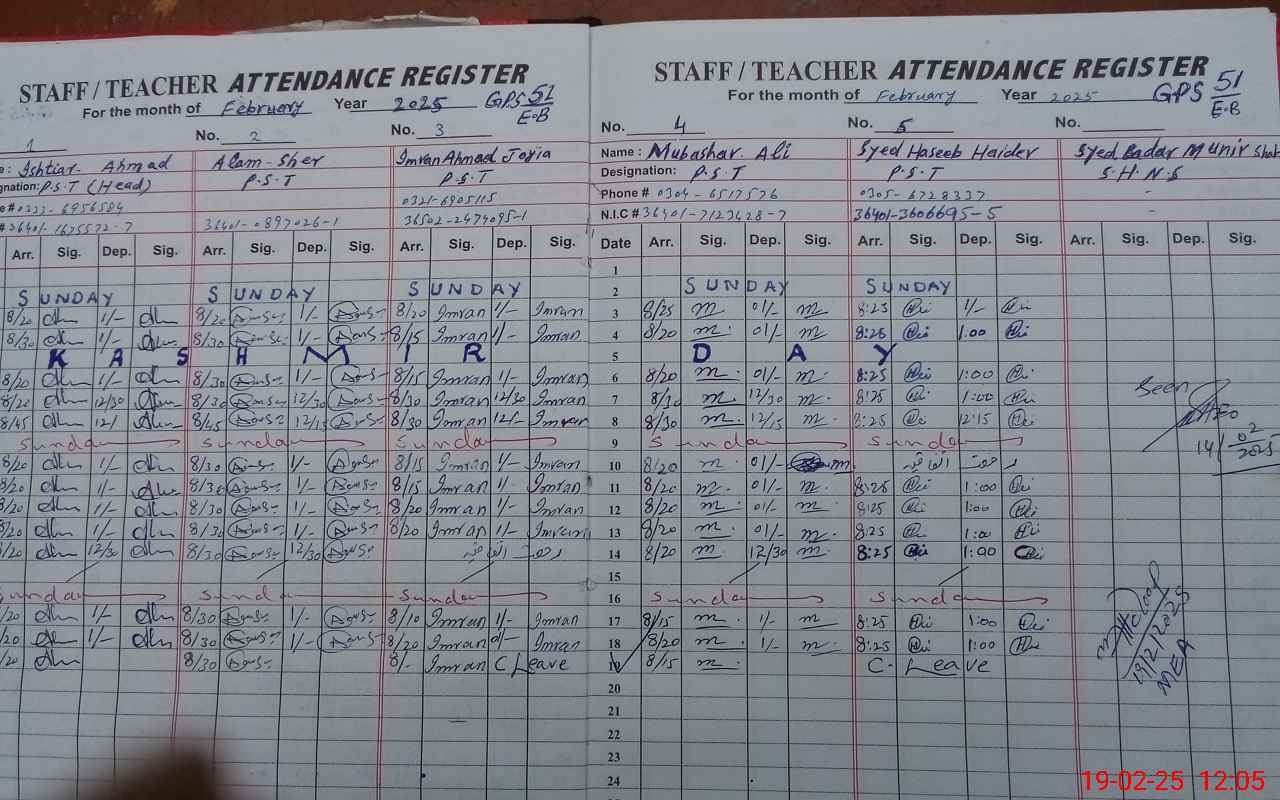 STAFF / TEACHER ATTENDANCE REGISTER
For the month of February Year 2025 GPS 51/E-B
1 No. 2 No. 3
e: Ishtiar Ahmad Alam-Sher Imran Ahmad Joyia
ignation: P.S.T (Head) P.S.T P.S.T
e # 0333-6956584 0321-6905115
# 36401-1675572-7 36401-0897026-1 36502-2474095-1
Arr. Sig. Dep. Sig. Arr. Sig. Dep. Sig. Arr. Sig. Dep. Sig.
SUNDAY SUNDAY SUNDAY
8/20 1/- 8/20 1/- 8/20 Imran 1/- Imran
8/30 1/- 8/30 1/- 8/15 Imran 1/- Imran
KASHMIR
8/20 1/- 8/30 1/- 8/15 Imran 1/- Imran
8/20 12/30 8/30 12/30 8/30 Imran 12/30 Imran
8/45 12/ 8/45 12/15 8/30 Imran 12/- Imran
Sunday Sunday Sunday
8/20 1/- 8/30 1/- 8/15 Imran 1/- Imran
8/20 1/- 8/30 1/- 8/15 Imran 1/ Imran
8/20 1/- 8/30 1/- 8/20 Imran 1/- Imran
8/20 1/- 8/30 1/- 8/20 Imran 1/- Imran
8/20 12/30 8/30 12/30 رخصت اتفاقیہ
Sunday Sunday Sunday
/20 1/- 8/30 1/- 8/10 Imran 1/- Imran
/20 1/- 8/30 1/- 8/20 Imran Imran
/20 8/30 8/- Imran C Leave
STAFF / TEACHER ATTENDANCE REGISTER
For the month of February Year 2025 GPS 51/E-B
No. 4 No. 5 No.
Name: Mubashar Ali Syed Haseeb Haider Syed Badar Munir Shah
Designation: P.S.T P.S.T S.H.N.S
Phone # 0304-6517576 0305-6728337 -
N.I.C # 36401-7123428-7 36401-3606695-5 -
Date Arr. Sig. Dep. Sig. Arr. Sig. Dep. Sig. Arr. Sig. Dep. Sig.
1
2 SUNDAY SUNDAY
3 8/25 01/- 8:25 1/-
4 8/20 01/- 8:25 1:00
5 DAY
6 8/20 01/- 8:25 1:00
7 8/30 12/30 8:25 1:00
8 8/30 12/15 8:25 12:15
9 Sunday Sunday
10 8/20 01/- رخصت اتفاقیہ
11 8/20 01/- 8:25 1:00
12 8/20 01/- 8:25 1:00
13 8/20 01/- 8:25 1:00
14 8/20 12/30 8:25 1:00
15
16 Sunday Sunday
17 8/15 1/- 8:25 1:00
18 8/20 1/- 8:25 1:00
19 8/15 C-Leave
20
21
22
23
24
Seen
AEO
14/02/2025
19/2/2025
MEA
19-02-25 12:05